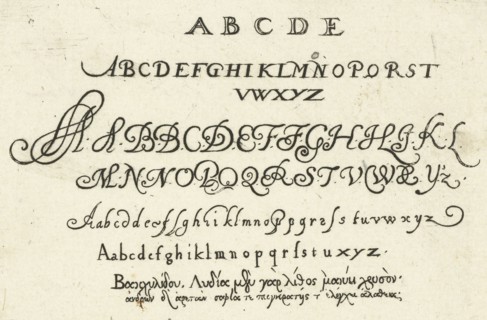 A B C D E
ABCDEFGHIKLMNOPQRST
VWXYZ
A A B B C D E F F G H H I J K L
M N N O P Q R S T V W Y z.
Aabcddefſghiklmnoppqrsſstuvwxyz
Aabcdefghiklmnopqrſstuxyz.
Βακχυλίδου. Λυδία μὲν γὰρ λίθος μανύει χρυσόν·
ἀνδρῶν δ' ἀρετὰν σοφία τε παγκρατής τ' ἐλέγχει ἀλάθεια.